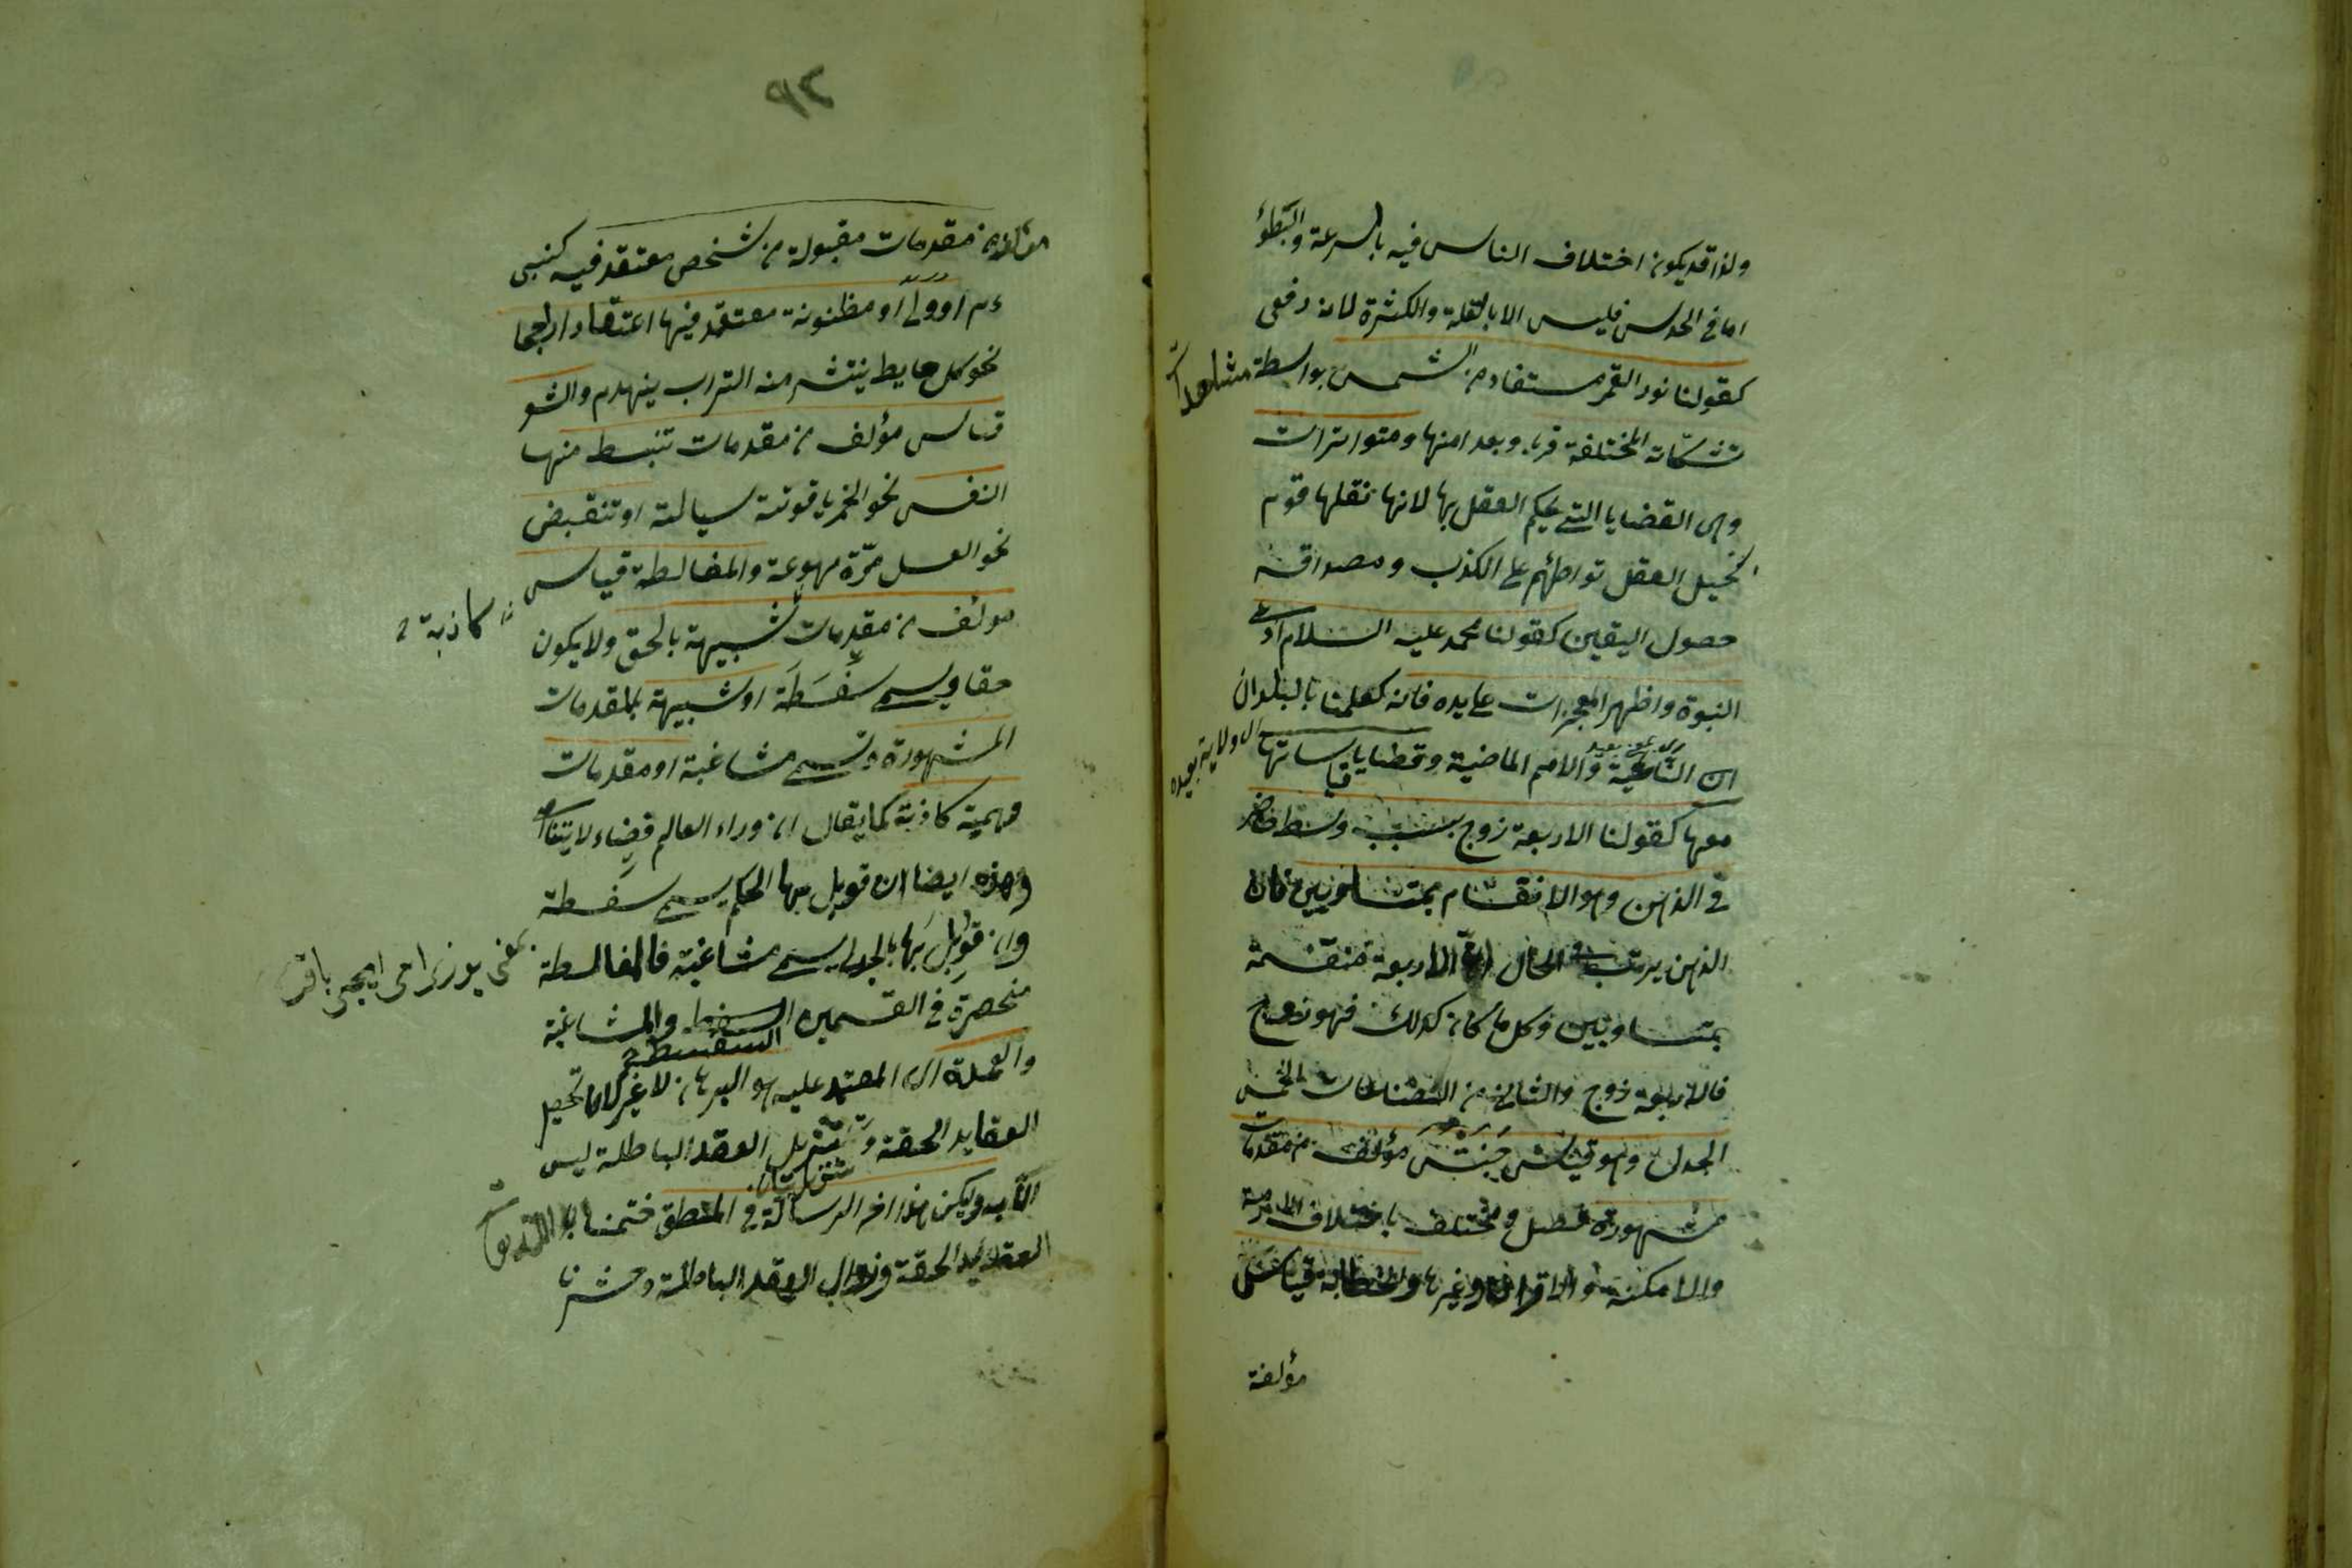 ولذا قد يكون اختلاف الناس فيه بالسرعة والبطؤ
اما في الحدس فليس الا بالقلة والكثرة لانه دفعي
كقولنا نور القمر مستفاد من الشمس بواسطة مشاهدة
تشكلاته المختلفة قربا وبعدا منها ومتواترات
وهى القضايا التي يحكم العقل بها لانها نقلها قوم
يحيل العقل تواطئهم على الكذب ومصداقه
حصول اليقين كقولنا محمد عليه السلام ادعى
النبوة واظهر المعجزات على يده فانه كعلمنا بالبلدان
النائية والامم الماضية وقضايا قياساتها
اى ولاية بعيده
معها كقولنا الاربعة زوج بسبب وسط حاضر
في الذهن وهو الانقسام بمتساويين فان
الذهن يرتب في الحال ان الاربعة منقسمة
بمتساويين وكل ما كان كذلك فهو زوج
فالاربعة زوج والثاني من الصناعات الخمس
الجدل وهو قياس مؤلف من مقدمات
مشهورة ويختلف باختلاف الازمنة
والامكنة والاقوام وغيرها والخطابة قياس
مؤلفة
٩٢
مؤلفة من مقدمات مقبولة من شخص معتقد فيه كنبى
او ولى او مظنونة معتقد فيها اعتقادا راجحا
نحو كل حايط ينتشر منه التراب ينهدم والشعر
قياس مؤلف من مقدمات تنبسط منها
النفس نحو الخمر ياقوتة سيالة او تنقبض
نحو العسل مرّة مهوعة والمغالطة قياس
مؤلف من مقدمات شبيهة بالحق ولا يكون
كاذبة
حقا ويسمى سفسطة او شبيهة بالمقدمات
المشهورة وتسمى مشاغبة او مقدمات
وهمية كاذبة كما يقال ان وراء العالم فضاء لا يتناهى
وهذه ايضا ان قوبل بها الحكيم يسمى سفسطة
وان قوبل بها الجدلي يسمى مشاغبة فالمغالطة
منحصرة في القسمين السفسطة والمشاغبة
السفسطة
والعمدة اى المعتمد عليه هو البرهان لا غير لان تحصيل
العقايد الحقة وتزيل العقد الباطلة ليس
الا به وليكن هذا اخر الرسالة في المنطق ختمنا الله تعالى
العقايد الحقة وزوال العقد الباطلة وحشرنا